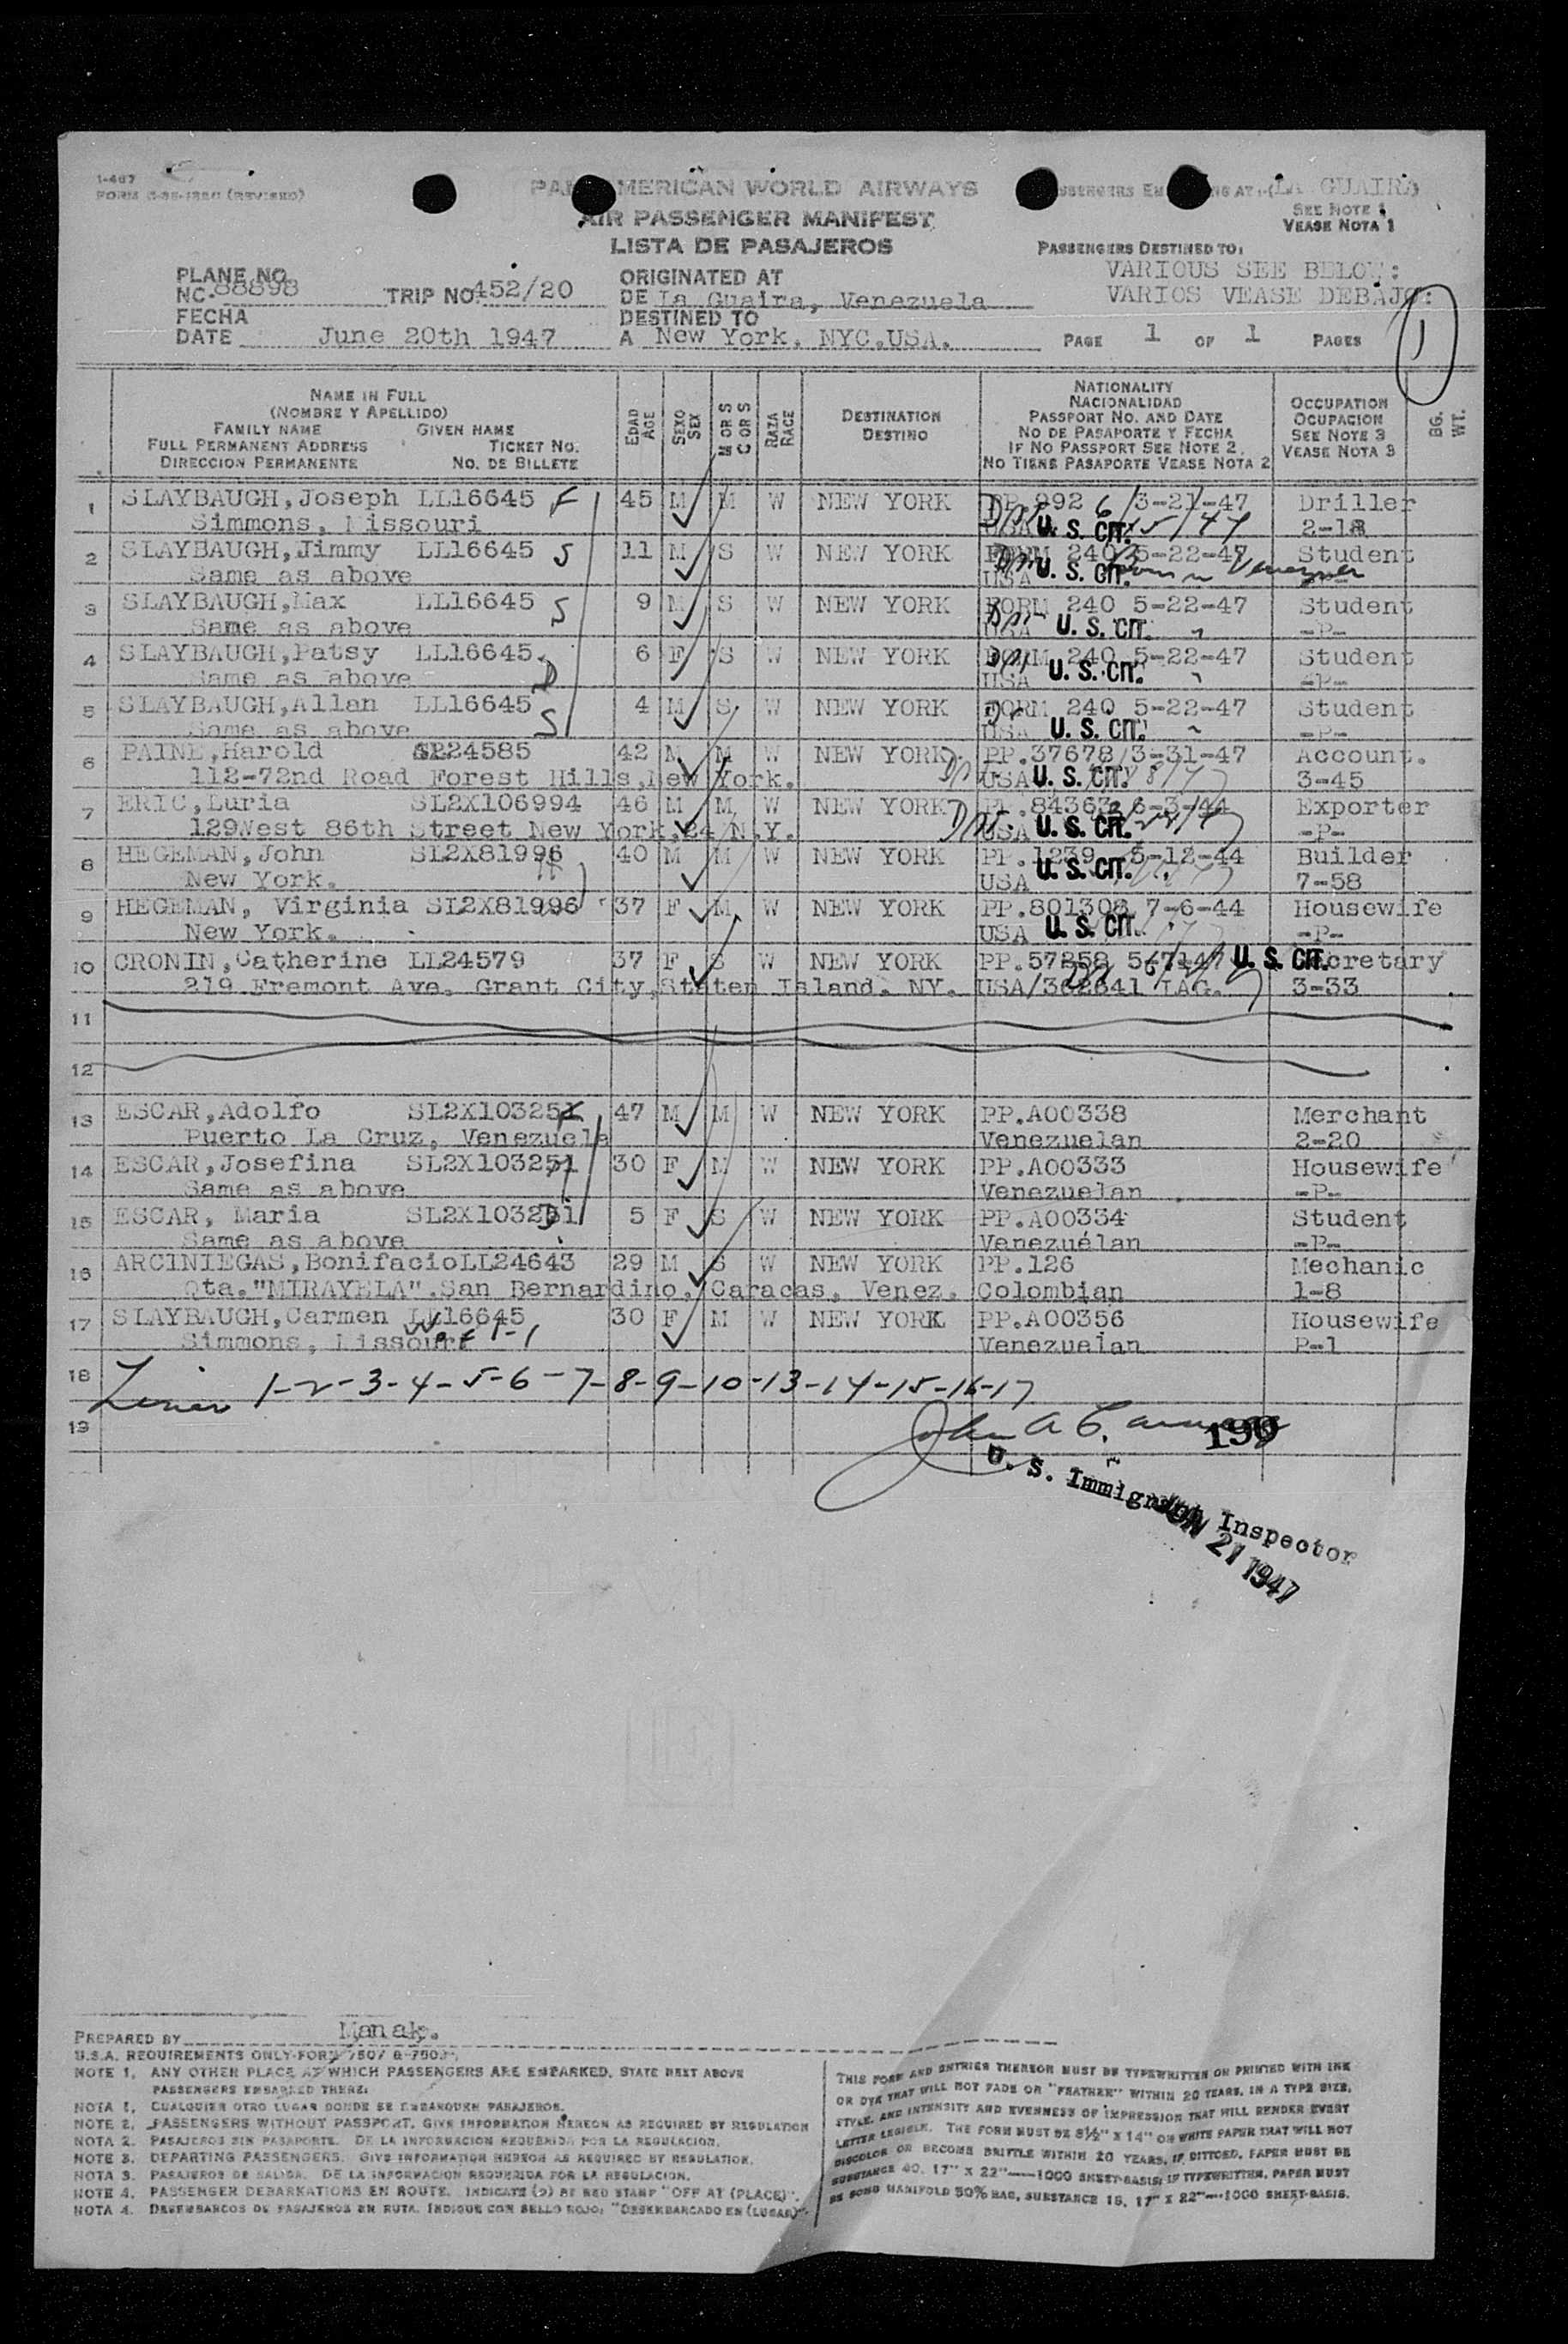 1-467
FORM (REVISED)
PAN AMERICAN WORLD AIRWAYS
AIR PASSENGER MANIFEST
LISTA DE PASAJEROS
PASSENGERS EMBARKING AT:-(LA GUAIRA)
SEE NOTE 1
VEASE NOTA 1
PASSENGERS DESTINED TO:
VARIOUS SEE BELOW:
VARIOS VEASE DEBAJO:
PLANE NO.
NC-88898 TRIP NO 452/20
FECHA
DATE June 20th 1947
ORIGINATED AT
DE La Guaira, Venezuela
DESTINED TO
A New York, NYC.USA.
PAGE 1 OF 1 PAGES
1
NAME IN FULL
(NOMBRE Y APELLIDO)
FAMILY NAME GIVEN NAME
FULL PERMANENT ADDRESS TICKET NO.
DIRECCION PERMANENTE NO. DE BILLETE
EDAD AGE
SEXO SEX
M OR S C OR S
RAZA RACE
DESTINATION
DESTINO
NATIONALITY
NACIONALIDAD
PASSPORT NO. AND DATE
NO DE PASAPORTE Y FECHA
IF NO PASSPORT SEE NOTE 2.
NO TIENE PASAPORTE VEASE NOTA 2
OCCUPATION
OCUPACION
SEE NOTE 3
VEASE NOTA 3
BG. WT.
1 SLAYBAUGH,Joseph LL16645 F 45 M M W NEW YORK PP.992 3-21-47 Driller
Simmons, Missouri USA U. S. CIT. 2-18
2 SLAYBAUGH,Jimmy LL16645 S 11 M S W NEW YORK FORM 240 5-22-47 Student
Same as above USA U. S. CIT. Born in Venezuela
3 SLAYBAUGH,Max LL16645 S 9 M S W NEW YORK FORM 240 5-22-47 Student
Same as above USA U. S. CIT. " -P-
4 SLAYBAUGH,Patsy LL16645 D 6 F S W NEW YORK FORM 240 5-22-47 Student
Same as above USA U. S. CIT. " -P-
5 SLAYBAUGH,Allan LL16645 S 4 M S W NEW YORK FORM 240 5-22-47 Student
Same as above USA U. S. CIT. " -P-
6 PAINE,Harold 24585 42 M M W NEW YORK PP.37678/3-31-47 Account.
112-72nd Road Forest Hills,New York. USA U. S. CIT. 3-45
7 ERIC,Luria SL2X106994 46 M M W NEW YORK PP.84363 6-3-44 Exporter
129West 86th Street New York,24 N.Y. USA U. S. CIT. -P-
8 HEGEMAN,John SL2X81996 40 M M W NEW YORK PP.1239 5-12-44 Builder
New York. USA U. S. CIT. 7-58
9 HEGEMAN, Virginia SL2X81996 37 F M W NEW YORK PP.801308 7-6-44 Housewife
New York. USA U. S. CIT. -P-
10 CRONIN,Catherine LL24579 37 F S W NEW YORK PP.57258 U. S. CIT. Secretary
219 Fremont Ave. Grant City,Staten Island. NY. USA/362641 LAG. 3-33
11
12
13 ESCAR,Adolfo SL2X103251 47 M M W NEW YORK PP.A00338 Merchant
Puerto La Cruz, Venezuela Venezuelan 2-20
14 ESCAR,Josefina SL2X103251 30 F M W NEW YORK PP.A00333 Housewife
Same as above Venezuelan -P-
15 ESCAR, Maria SL2X103251 D 5 F S W NEW YORK PP.A00334 Student
Same as above Venezuelan -P-
16 ARCINIEGAS,BonifacioLL24643 29 M S W NEW YORK PP.126 Mechanic
Qta."MIRAYELA".San Bernardino, Caracas, Venez. Colombian 1-8
17 SLAYBAUGH,Carmen LL16645 30 F M W NEW YORK PP.A00356 Housewife
Simmons, Missouri Wife 1-1 Venezuelan P-1
18
Lines 1-2-3-4-5-6-7-8-9-10-13-14-15-16-17
19
John A C.
199
U. S. Immigrant Inspector
JUN 21 1947
PREPARED BY Manak.
U.S.A. REQUIREMENTS ONLY-FORM 7507 &
NOTE 1. ANY OTHER PLACE AT WHICH PASSENGERS ARE EMBARKED, STATE NEXT ABOVE
PASSENGERS EMBARKED THERE:
NOTA 1. CUALQUIER OTRO LUGAR DONDE SE EMBARQUEN PASAJEROS.
NOTE 2. PASSENGERS WITHOUT PASSPORT. GIVE INFORMATION HEREON AS REQUIRED BY REGULATION
NOTA 2. PASAJEROS SIN PASAPORTE. DE LA INFORMACION REQUERIDA POR LA REGULACION.
NOTE 3. DEPARTING PASSENGERS. GIVE INFORMATION HEREON AS REQUIRED BY REGULATION.
NOTA 3. PASAJEROS DE SALIDA. DE LA INFORMACION REQUERIDA POR LA REGULACION.
NOTE 4. PASSENGER DEBARKATIONS EN ROUTE. INDICATE (D) BY RED STAMP "OFF AT (PLACE)".
NOTA 4. DESEMBARCOS DE PASAJEROS EN RUTA. INDIQUE CON SELLO ROJO: "DESEMBARCADO EN (LUGAR)".
THIS FORM AND ENTRIES THEREON MUST BE TYPEWRITTEN OR PRINTED WITH INK
OR DYE THAT WILL NOT FADE OR "FEATHER" WITHIN 20 YEARS, IN A TYPE SIZE,
STYLE, AND INTENSITY AND EVENNESS OF IMPRESSION THAT WILL RENDER EVERY
LETTER LEGIBLE. THE FORM MUST BE 8½" X 14" ON WHITE PAPER THAT WILL NOT
DISCOLOR OR BECOME BRITTLE WITHIN 20 YEARS. IF DITTOED, PAPER MUST BE
SUBSTANCE 40. 17" X 22"—1000 SHEET-BASIS; IF TYPEWRITTEN, PAPER MUST
BE BOND MANIFOLD 50% RAG, SUBSTANCE 16, 17" X 22"—1000 SHEET-BASIS.